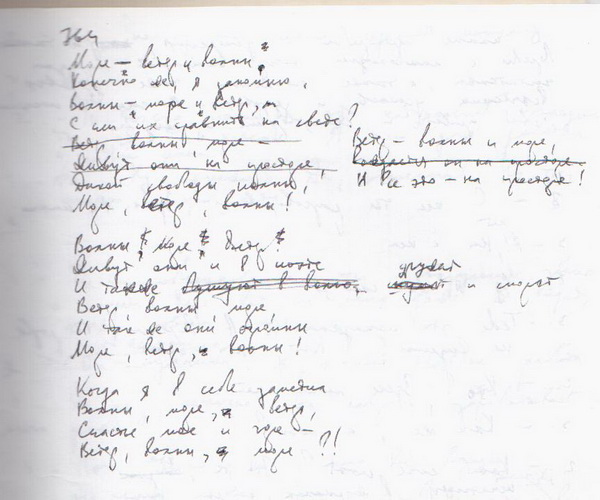 Море — ветер и волны?
Конечно же, я запомню,
Волны — море и ветер,
С чем их сравнить на свете?
Ветер, волны, море —
Живут они на просторе,
Дикой свободы полны,
Море, ветер, волны!
Ветер — волны и море,
на просторе
И все это — на просторе!
Волны! Море! Ветер!
Живут они и в поэте
И также в волнах, дружат и спорят
Ветер, волны, море
И так же они огромны
Море, ветер, волны!
Когда я в себе заметил
Волны, море, ветер,
Счастье мое и горе —
Ветер, волны, море?!